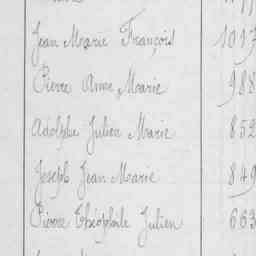 Jean Marie François 1017
Pierre Anne Marie 988
Adolphe Julien Marie 852
Joseph Jean Marie 849
Pierre Théophile Julien 663